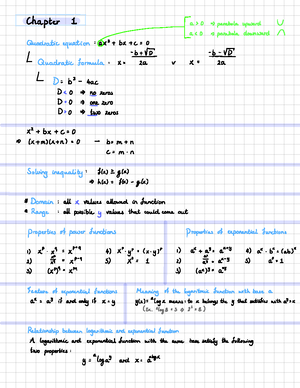 Chapter 1
a > 0 → parabola upward ∪
a < 0 → parabola downward ∩
Quadratic equation = ax² + bx + c = 0
Quadratic formula = x = (-b + √D)/2a v x = (-b - √D)/2a
D = b² - 4ac
D < 0 ⇒ no zeros
D = 0 ⇒ one zero
D > 0 ⇒ two zeros
x² + bx + c = 0
⇒ (x+m)(x+n) = 0 → b = m + n
c = m · n
Solving inequality: f(x) ≥ g(x)
⇒ h(x) = f(x) - g(x)
* Domain: all x values allowed in function
* Range: all possible y values that could come out
Properties of power functions
Properties of exponential functions
1)
2)
3)
4) xᵖ · yᵖ = (x·y)ᵖ
5) x⁰ = 1
1)
2)
3)
4) aˣ · bˣ = (ab)ˣ
5) a⁰ = 1
Feature of exponential functions
aˣ = aʸ if and only if x = y
Meaning of the logarithmic function with base a
Relationship between logarithmic and exponential function
A logarithmic and exponential function with the same base satisfy the following
two properties: